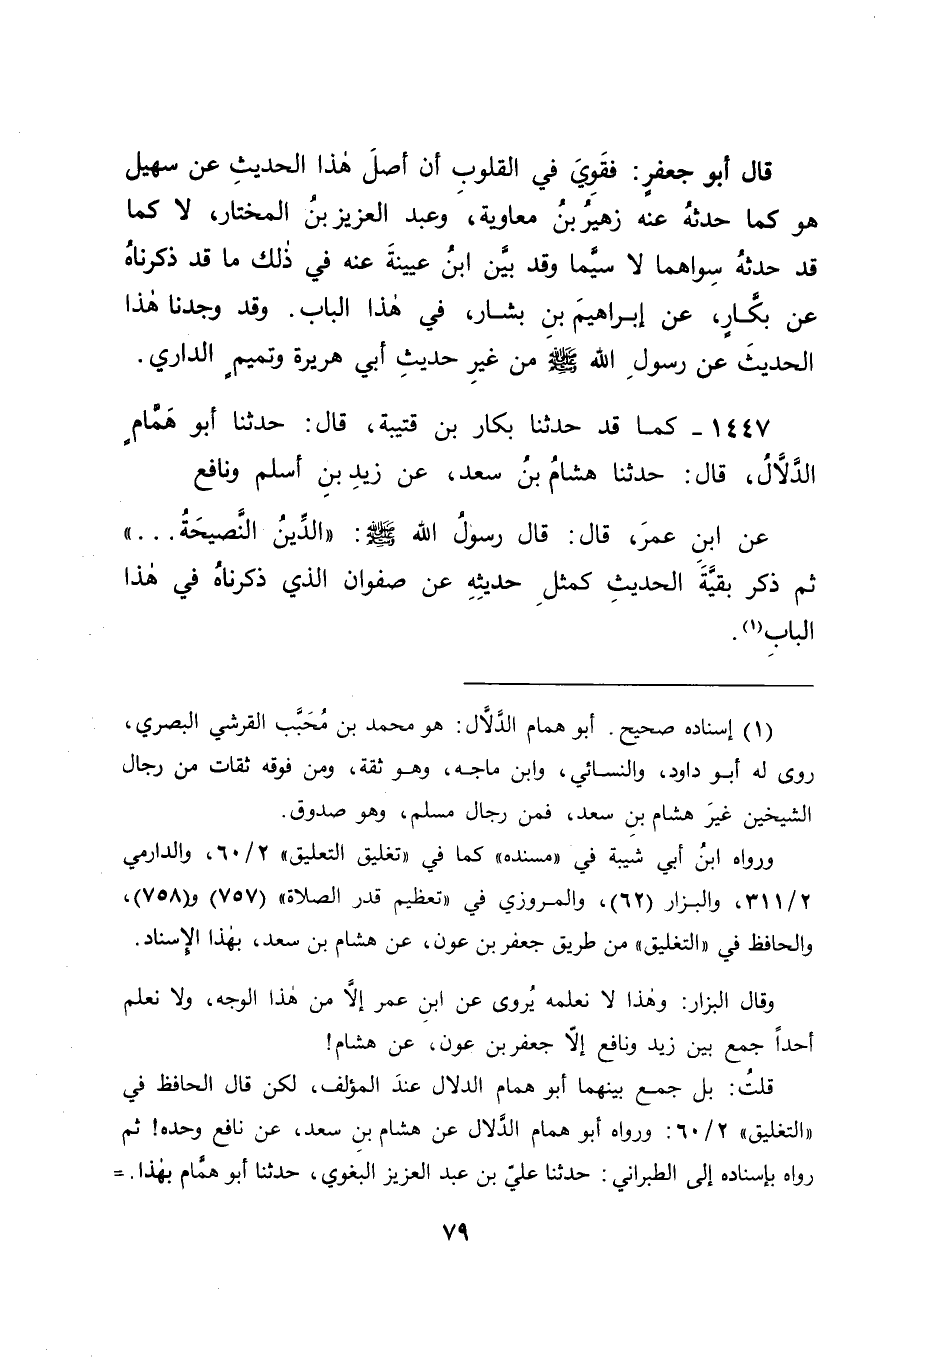 قال أبو جعفرٍ: فقَوِيَ في القلوبِ أن أصلَ هٰذا الحديثِ عن سهيل
هو كما حدثهُ عنه زهيرُ بنُ معاوية، وعبد العزيز بنُ المختار، لا كما
قد حدثهُ سِواهما لا سيَّما وقد بيَّن ابنُ عيينةَ عنه في ذٰلك ما قد ذكرناهُ
عن بكَّارٍ، عن إبراهيمَ بنِ بشار، في هٰذا الباب. وقد وجدنا هٰذا
الحديثَ عن رسولِ الله ﷺ من غيرِ حديثِ أبي هريرة وتميمٍ الداري.
١٤٤٧ ـ كما قد حدثنا بكار بن قتيبة، قال: حدثنا أبو هَمَّامٍ
الدَّلَّالُ، قال: حدثنا هشامُ بنُ سعد، عن زيدِ بنِ أسلم ونافع
عن ابنِ عمرَ، قال: قال رسولُ الله ﷺ: «الدِّينُ النَّصيحَةُ...»
ثم ذكر بقيَّةَ الحديثِ كمثلِ حديثِهِ عن صفوان الذي ذكرناهُ في هٰذا
البابِ(١).
(١) إسناده صحيح. أبو همام الدَّلَّال: هو محمد بن مُحَبَّب القرشي البصري،
روى له أبو داود، والنسائي، وابن ماجه، وهو ثقة، ومن فوقه ثقات من رجال
الشيخين غيرَ هشام بنِ سعد، فمن رجال مسلم، وهو صدوق.
ورواه ابنُ أبي شيبة في «مسنده» كما في «تغليق التعليق» ٦٠/٢، والدارمي
٣١١/٢، والبزار (٦٢)، والمروزي في «تعظيم قدر الصلاة» (٧٥٧) و(٧٥٨)،
والحافظ في «التغليق» من طريق جعفر بن عون، عن هشام بن سعد، بهٰذا الإِسناد.
وقال البزار: وهٰذا لا نعلمه يُروى عن ابنِ عمر إلَّا من هٰذا الوجه، ولا نعلم
أحداً جمع بين زيد ونافع إلّا جعفر بن عون، عن هشام!
قلتُ: بل جمع بينهما أبو همام الدلال عندَ المؤلف، لكن قال الحافظ في
«التغليق» ٦٠/٢: ورواه أبو همام الدَّلال عن هشام بن سعد، عن نافع وحده! ثم
رواه بإسناده إلى الطبراني: حدثنا عليّ بن عبد العزيز البغوي، حدثنا أبو همَّام بهٰذا. =
٧٩